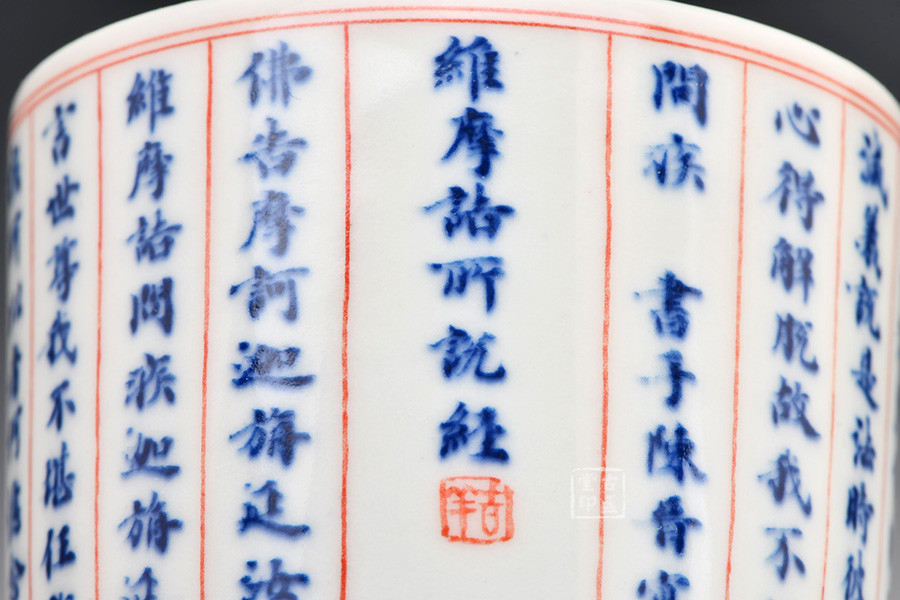 滅義說是法時彼
心得解脫故我不
問疾 書手陳晉
維摩詰所說經
吉羊
佛告摩訶迦旃延汝
維摩詰問疾迦旃延
言世尊我不堪任